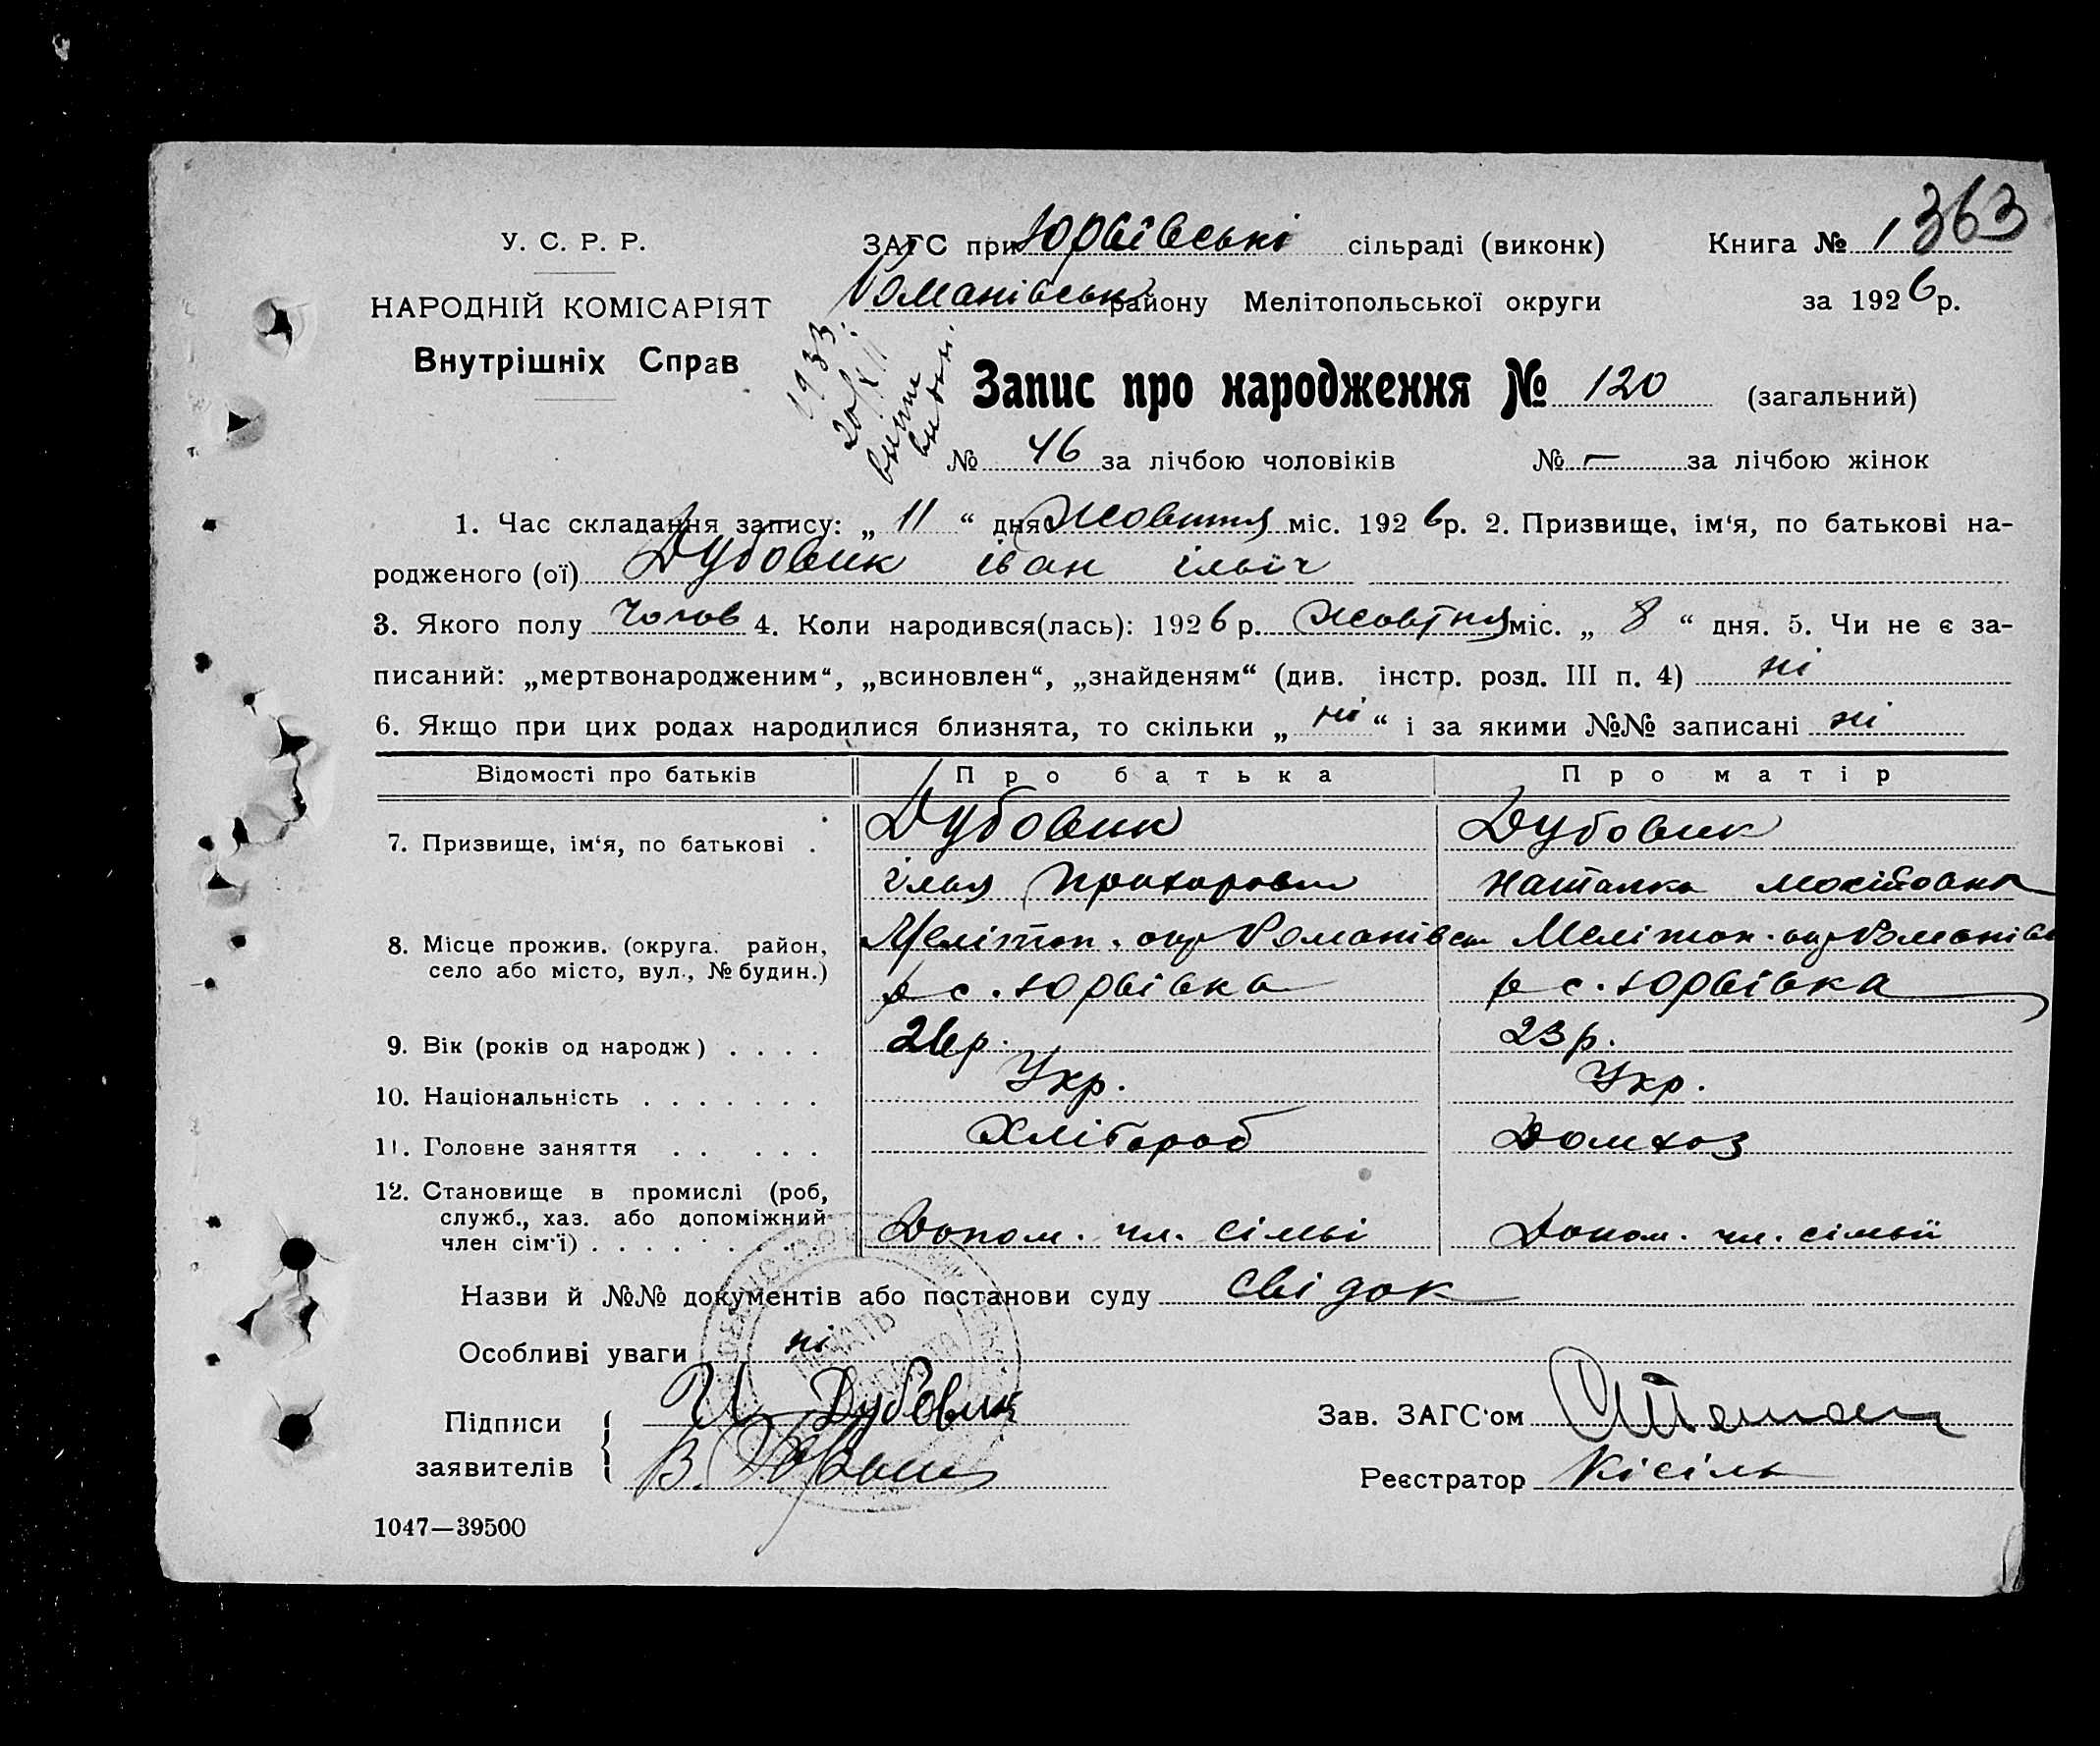 363
У. С. Р. Р. ЗАГС при Юрвівські сільраді (виконк) Книга № 1
НАРОДНІЙ КОМІСАРІЯТ Романівськ району Мелітопольської округи за 1926 р.
Внутрішніх Справ
1933
20/XII
випис
видані
Запис про народження № 120 (загальний)
№ 46 за лічбою чоловіків № — за лічбою жінок
1. Час складання запису: „ 11 “ дня Жовтня міс. 1926 р. 2. Призвище, ім‘я, по батькові на-
родженого (ої) Дубовик іван ільїч
3. Якого полу Чолов 4. Коли народився(лась): 1926 р. жовтня міс. „ 8 “ дня. 5. Чи не є за-
писаний: „мертвонародженим“, „всиновлен“, „знайденям“ (див. інстр. розд. III п. 4) ні
6. Якщо при цих родах народилися близнята, то скільки „ ні “ і за якими №№ записані ні
Відомості про батьків Про батька Про матір
7. Призвище, ім‘я, по батькові . Дубовик Дубовик
ілья Прохорович Наталка
8. Місце прожив. (округа. район, Мелітоп. окр Романівськ Мелітоп. окр Романівс
село або місто, вул., № будин.) р с. Юрвівка р с. Юрвівка
9. Вік (років од народж) . . . . 26 р. 23 р.
10. Національність . . . . . . . Укр. Укр.
11. Головне заняття . . . . . Хлібороб Домхоз
12. Становище в промислі (роб,
служб., хаз. або допоміжний
член сім‘ї) . . . . . . . Допом. чл. сімьі Допом. чл. сімьї
Назви й №№ документів або постанови суду свідок
Особливі уваги ні
Підписи И Дубовик Зав. ЗАГС‘ом
заявителів В. Реєстратор Кісіль
1047—39500